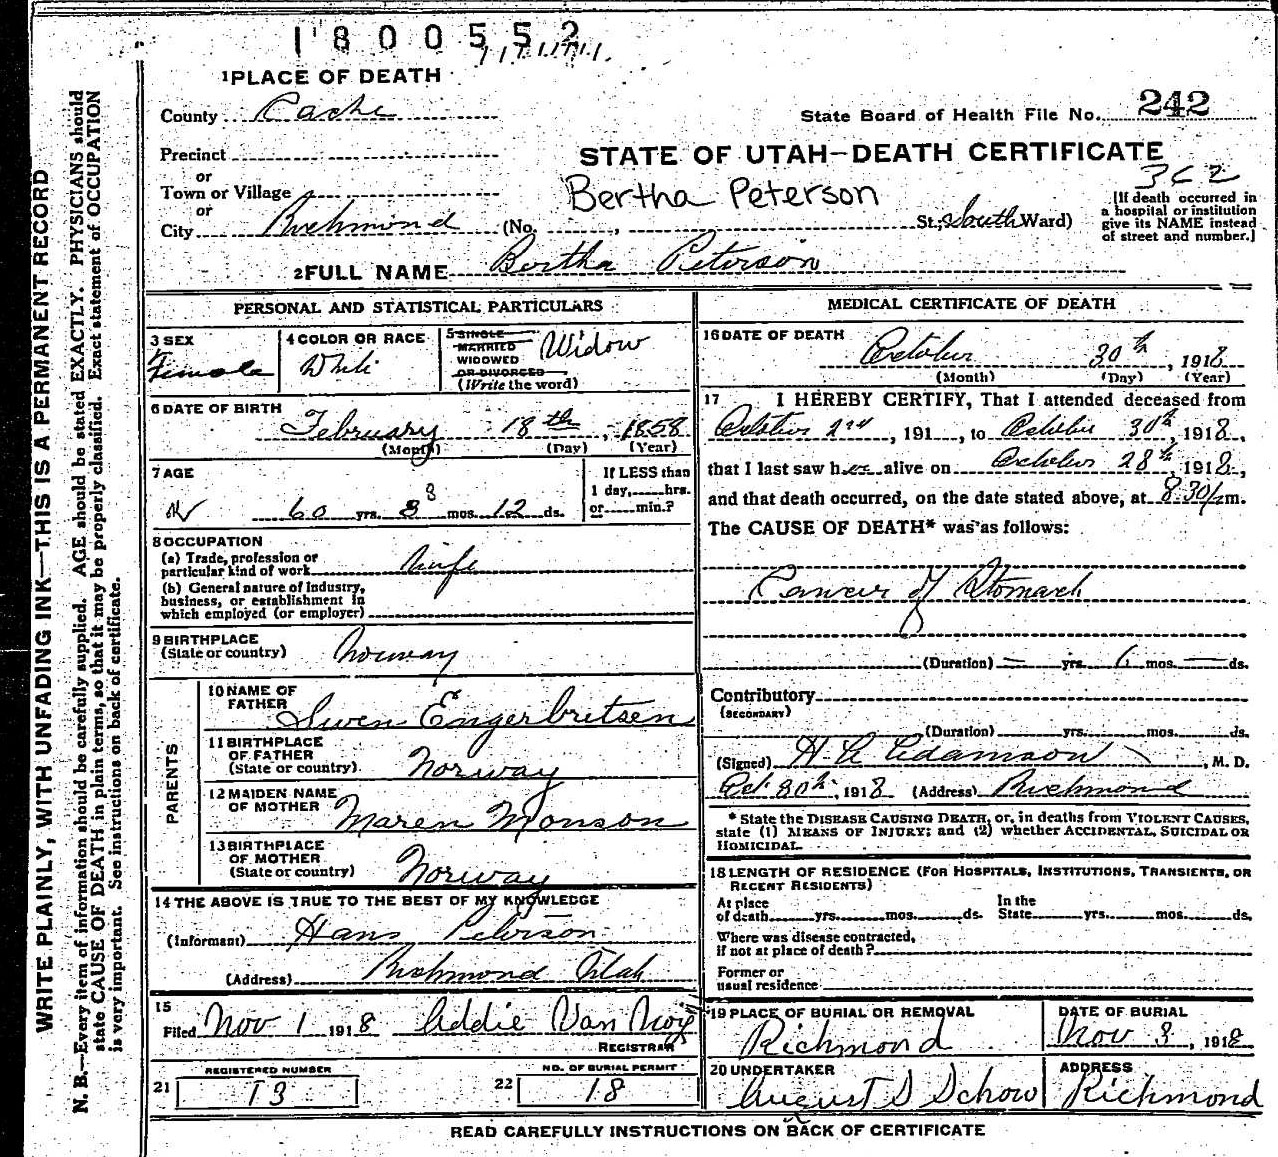 1800552
1 PLACE OF DEATH
County Cache
State Board of Health File No. 242
Precinct
or
Town or Village
or
City Richmond (No. , St; South Ward)
STATE OF UTAH—DEATH CERTIFICATE
Bertha Peterson
362
[If death occurred in
a hospital or institution
give its NAME instead
of street and number.]
2 FULL NAME Bertha Peterson
PERSONAL AND STATISTICAL PARTICULARS
3 SEX
Female
4 COLOR OR RACE
White
5 SINGLE
MARRIED
WIDOWED
OR DIVORCED
(Write the word)
Widow
6 DATE OF BIRTH
February 18th, 1858
(Month) (Day) (Year)
7 AGE
60 yrs. 8 mos. 12 ds.
8
If LESS than
1 day, hrs.
or min.?
8 OCCUPATION
(a) Trade, profession or
particular kind of work
(b) General nature of industry,
business, or establishment in
which employed (or employer)
9 BIRTHPLACE
(State or country) Norway
PARENTS
10 NAME OF
FATHER Swen Engerbritsen
11 BIRTHPLACE
OF FATHER
(State or country) Norway
12 MAIDEN NAME
OF MOTHER Maren Monson
13 BIRTHPLACE
OF MOTHER
(State or country) Norway
14 THE ABOVE IS TRUE TO THE BEST OF MY KNOWLEDGE
(Informant) Hans Peterson
(Address) Richmond Utah
15
Filed Nov 1, 1918 Addie Van Noy
REGISTRAR
21 REGISTERED NUMBER
13
22 NO. OF BURIAL PERMIT
18
MEDICAL CERTIFICATE OF DEATH
16 DATE OF DEATH
October 30th, 1918
(Month) (Day) (Year)
17 I HEREBY CERTIFY, That I attended deceased from
October 2nd, 191 , to October 30th, 1918,
that I last saw her alive on October 28th, 1918,
and that death occurred, on the date stated above, at 8:30 m.
The CAUSE OF DEATH* was as follows:
Cancer of Stomach
(Duration) — yrs. 6 mos. — ds.
Contributory
(SECONDARY)
(Duration) yrs. mos. ds.
(Signed) Adamson, M. D.
Oct 30th, 1918 (Address) Richmond
* State the DISEASE CAUSING DEATH, or, in deaths from VIOLENT CAUSES,
state (1) MEANS OF INJURY; and (2) whether ACCIDENTAL, SUICIDAL OR
HOMICIDAL.
18 LENGTH OF RESIDENCE (FOR HOSPITALS, INSTITUTIONS, TRANSIENTS, OR
RECENT RESIDENTS)
At place
of death yrs. mos. ds.
In the
State yrs. mos. ds.
Where was disease contracted,
if not at place of death?
Former or
usual residence
19 PLACE OF BURIAL OR REMOVAL
Richmond
DATE OF BURIAL
Nov 3, 1918
20 UNDERTAKER
August S Schow
ADDRESS
Richmond
READ CAREFULLY INSTRUCTIONS ON BACK OF CERTIFICATE
WRITE PLAINLY, WITH UNFADING INK—THIS IS A PERMANENT RECORD
N. B.—Every item of information should be carefully supplied. AGE should be stated EXACTLY. PHYSICIANS should
state CAUSE OF DEATH in plain terms, so that it may be properly classified. Exact statement of OCCUPATION
is very important. See instructions on back of certificate.